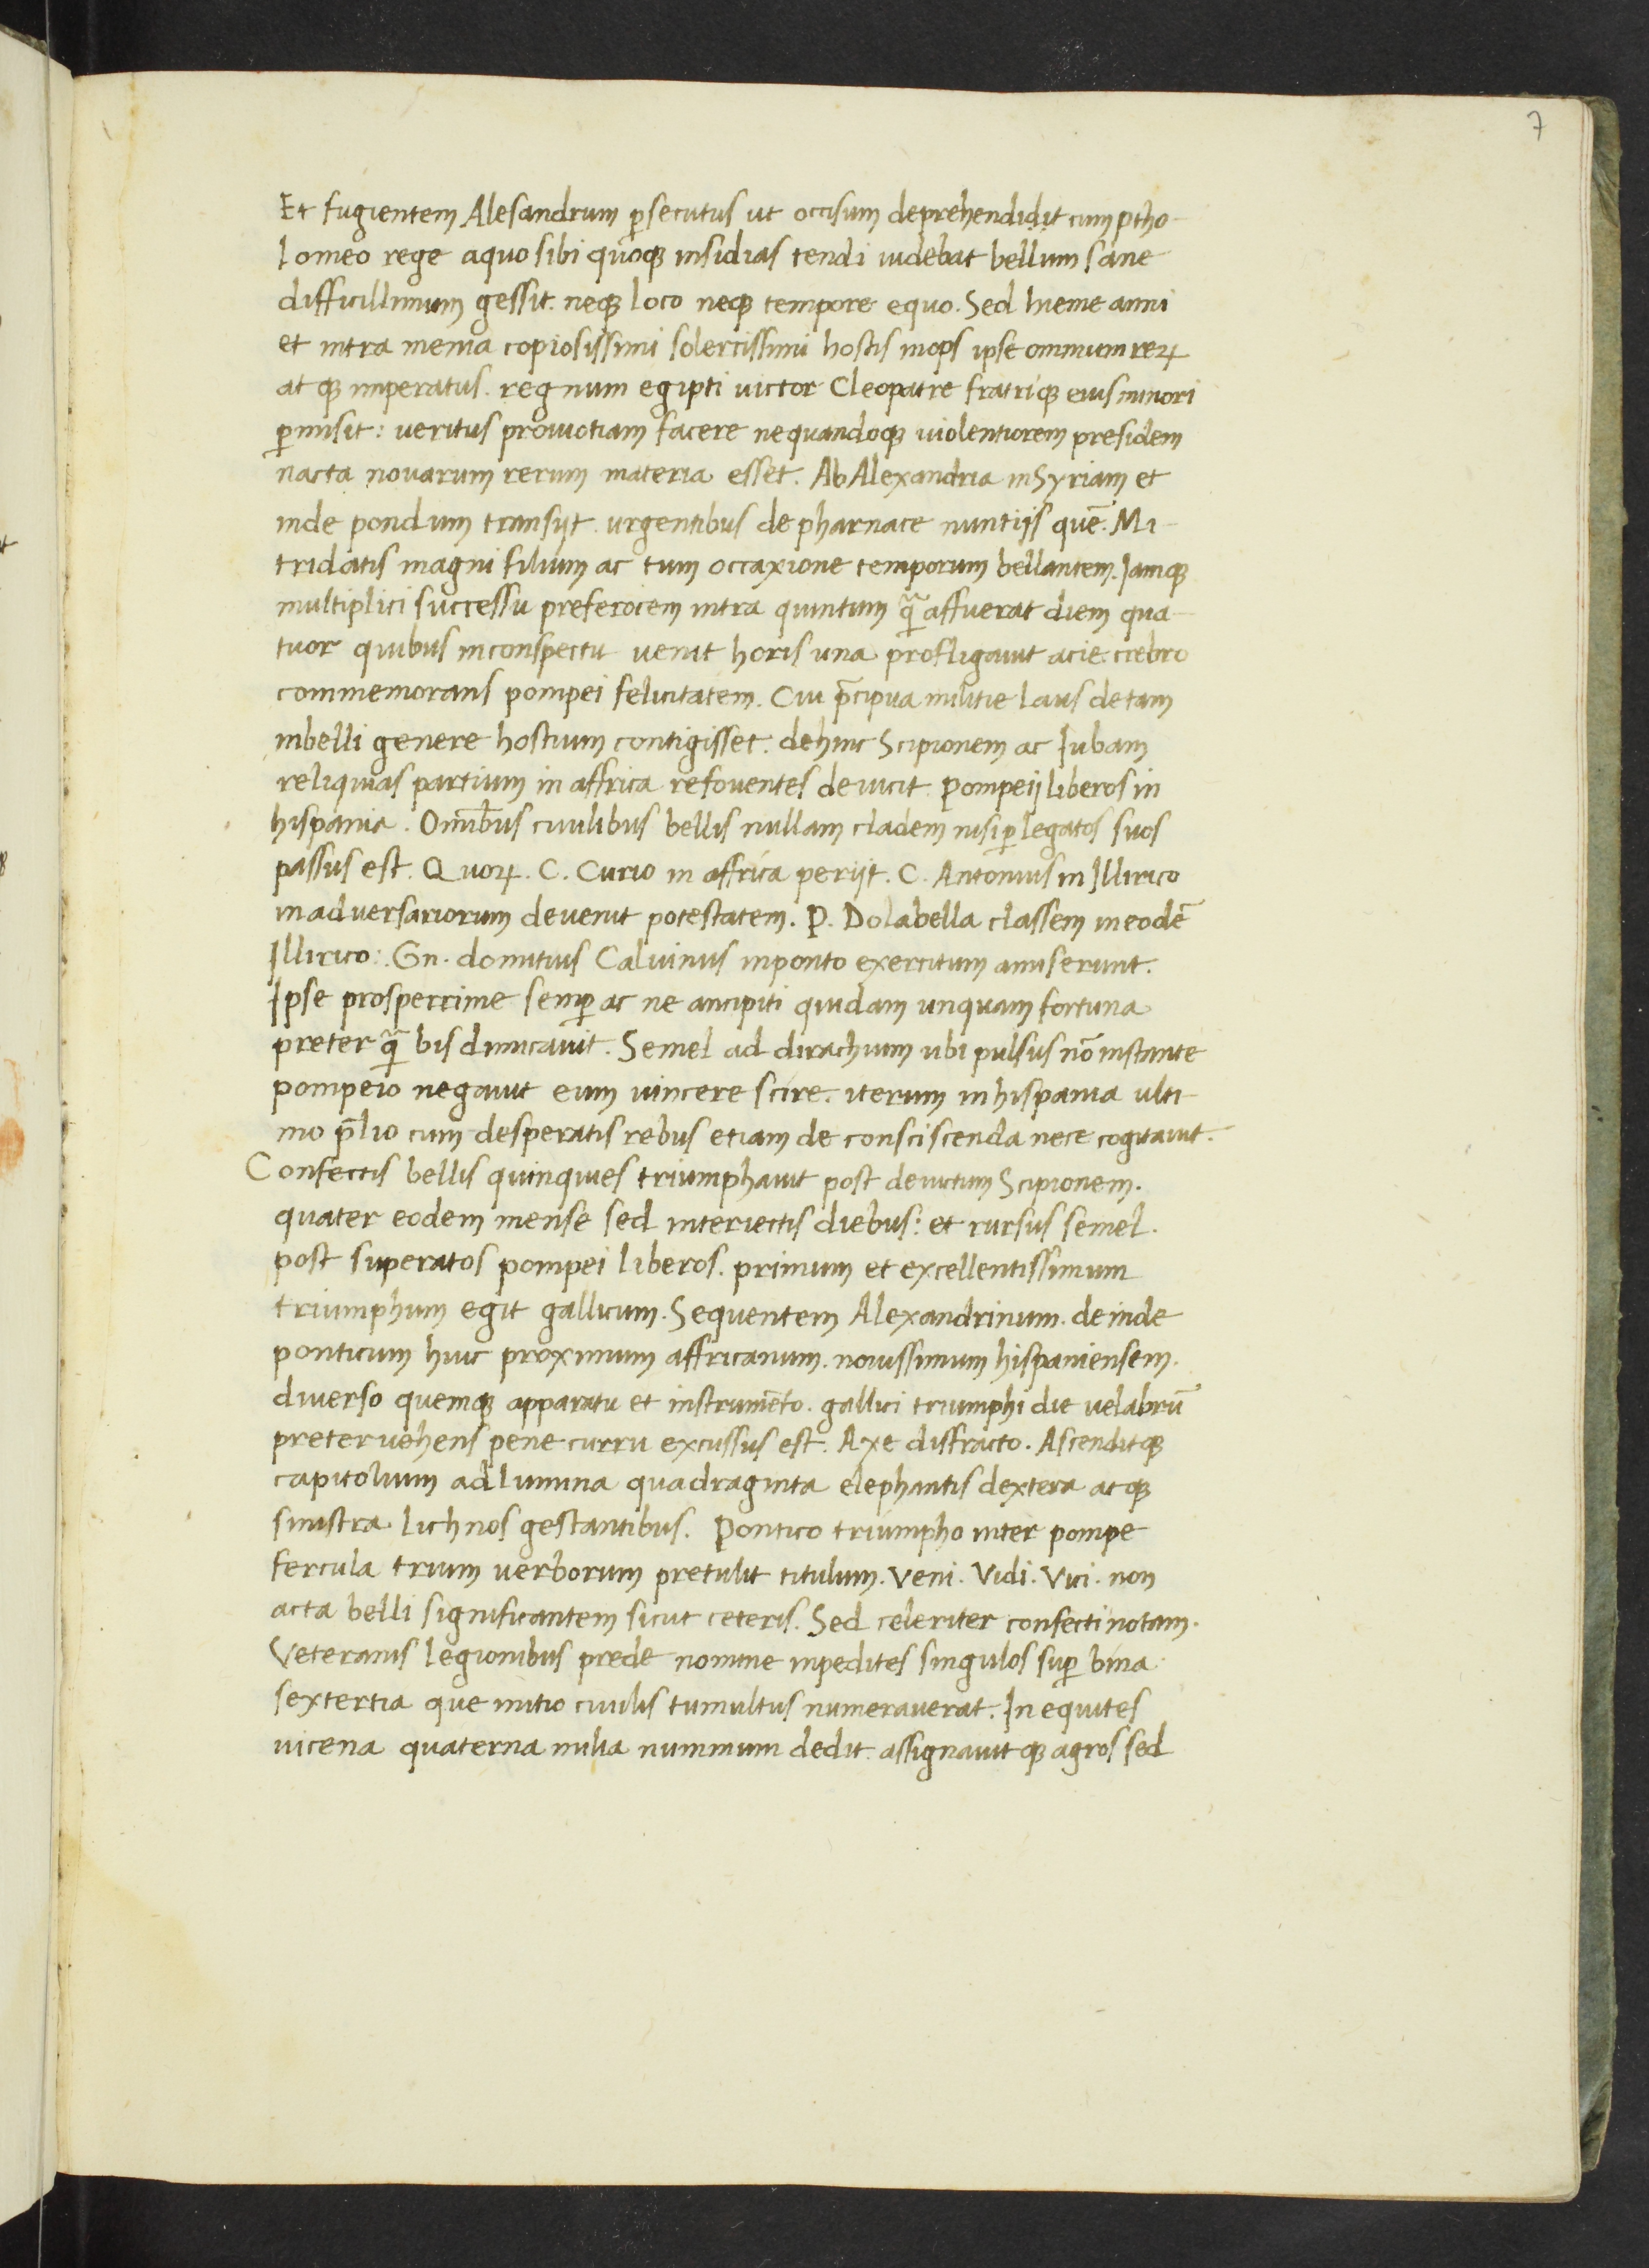 7
Et fugientem Alesandrum ꝑsecutus ut occisum deprehendidit cum ptho-
lomeo rege aquo sibi quoqꝫ insidias tendi uidebat bellum sane
difficillimum gessit. neqꝫ loco neqꝫ tempore equo. Sed hieme anni
et intra menia copiosissimi solertissimi hostis inops ipse omnium reꝝ
at qꝫ imperatus. regnum egipti uictor Cleopatre fratriqꝫ eius minori
ꝑmisit: ueritus prouiotiam facere nequandoqꝫ uiolentiorem presidem
nacta nouarum rerum materia esset. Ab Alexandria in Syriam et
inde pondum transijt urgentibus de pharnace nuntijs quē. Mi-
tridatis magni filium ac tum occaxione temporum bellantem. Iamqꝫ
multiplici successu preferocem intra quintum q̄ affuerat diem qua-
tuor quibus inconspectu uenit horis una profligauit acie. crebro
commemorans pompei felicitatem. Cui p̄cipua militie laus de tam
inbelli genere hostium contigisset. dehinc Scipionem ac Iubam
reliquias partium in affrica refouentes deuicit. Pompeij liberos in
hispania. Omībus ciuilibus bellis nullam cladem nisi ꝑ legatos suos
passus est. Quoꝝ. C. Curio in affrica perijt. C. Antonius in Illirico
in aduersariorum deuenit potestatem. P. Dolabella classem in eodē
Illirico: Gn. domitius Caluinus inponto exercitum amiserunt.
Ipse prosperrime semꝑ ac ne ancipiti quidam unquam fortuna
preter q̄ bis dimicauit. Semel ad dirachium ubi pulsus nō instante
pompeio negauit eum uincere scire. iterum in hispania ulti-
mo p̄lio cum desperatis rebus etiam de consciscenda nece cogitauit.
Confectis bellis quinquies triumphauit post deuictum Scipionem.
quater eodem mense sed interiectis diebus: et rursus semel.
post superatos pompei liberos. primum et excellentissimum
triumphum egit gallicum. Sequentem Alexandrinum. deinde
ponticum huic proximum affricanum. nouissimum hispaniensem.
diuerso quemqꝫ apparatu et instrumēto. gallici triumphi die uelabrū
preteruehens pene curru excussus est. Axe diffracto. Ascenditqꝫ
capitolium ad lumina quadraginta elephantis dextera atqꝫ
sinistra lichnos gestantibus. Pontico triumpho inter pompe
fercula trium uerborum pretulit titulum. Veni. Vidi. Vici. non
acta belli significantem sicut ceteris. Sed celeriter confecti notam.
Veteranis legionibus prede nomine inpedites singulos suꝑ bina
sextertia que initio ciuilis tumultus numerauerat. In equites
uicena quaterna milia nummum dedit. assignauit qꝫ agros sed